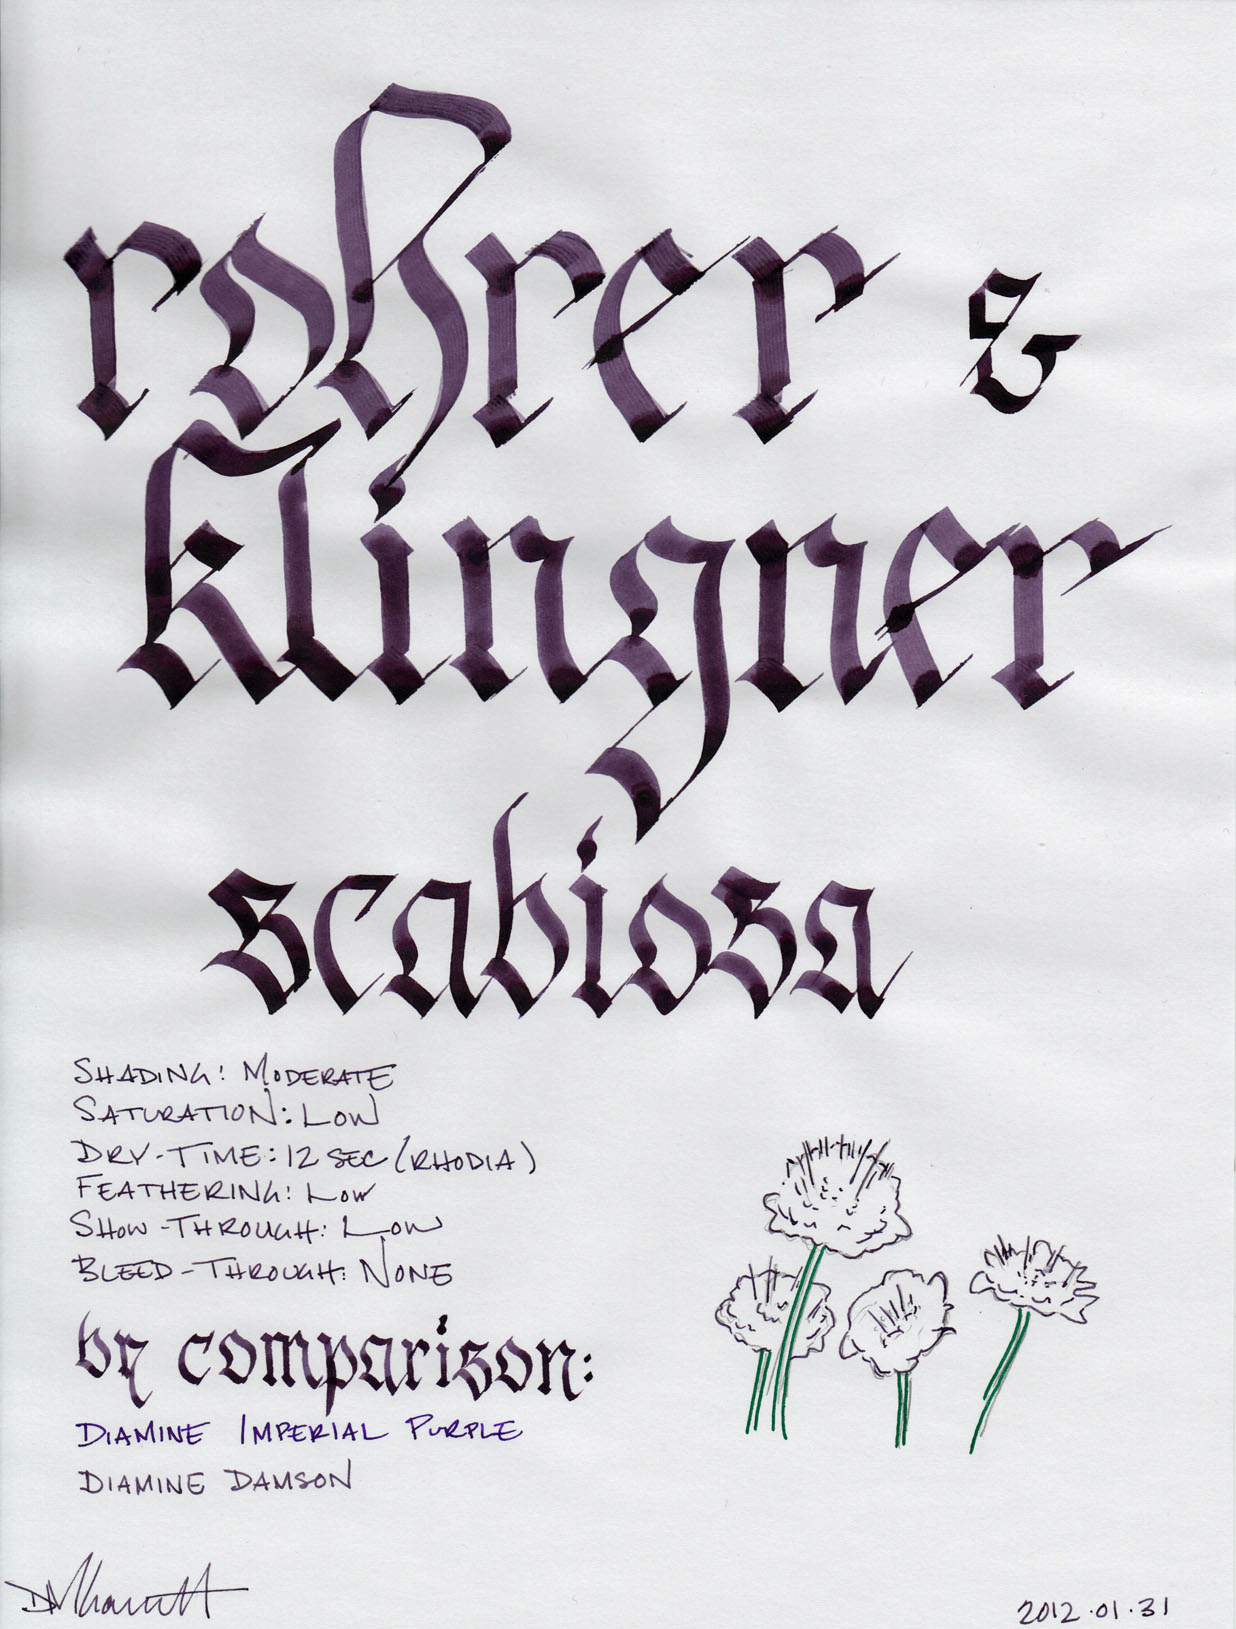 rohrer &
klingner
scabiosa
SHADING: MODERATE
SATURATION: LOW
DRY-TIME: 12 SEC (RHODIA)
FEATHERING: LOW
SHOW-THROUGH: LOW
BLEED-THROUGH: NONE
by comparison:
DIAMINE IMPERIAL PURPLE
DIAMINE DAMSON
2012.01.31